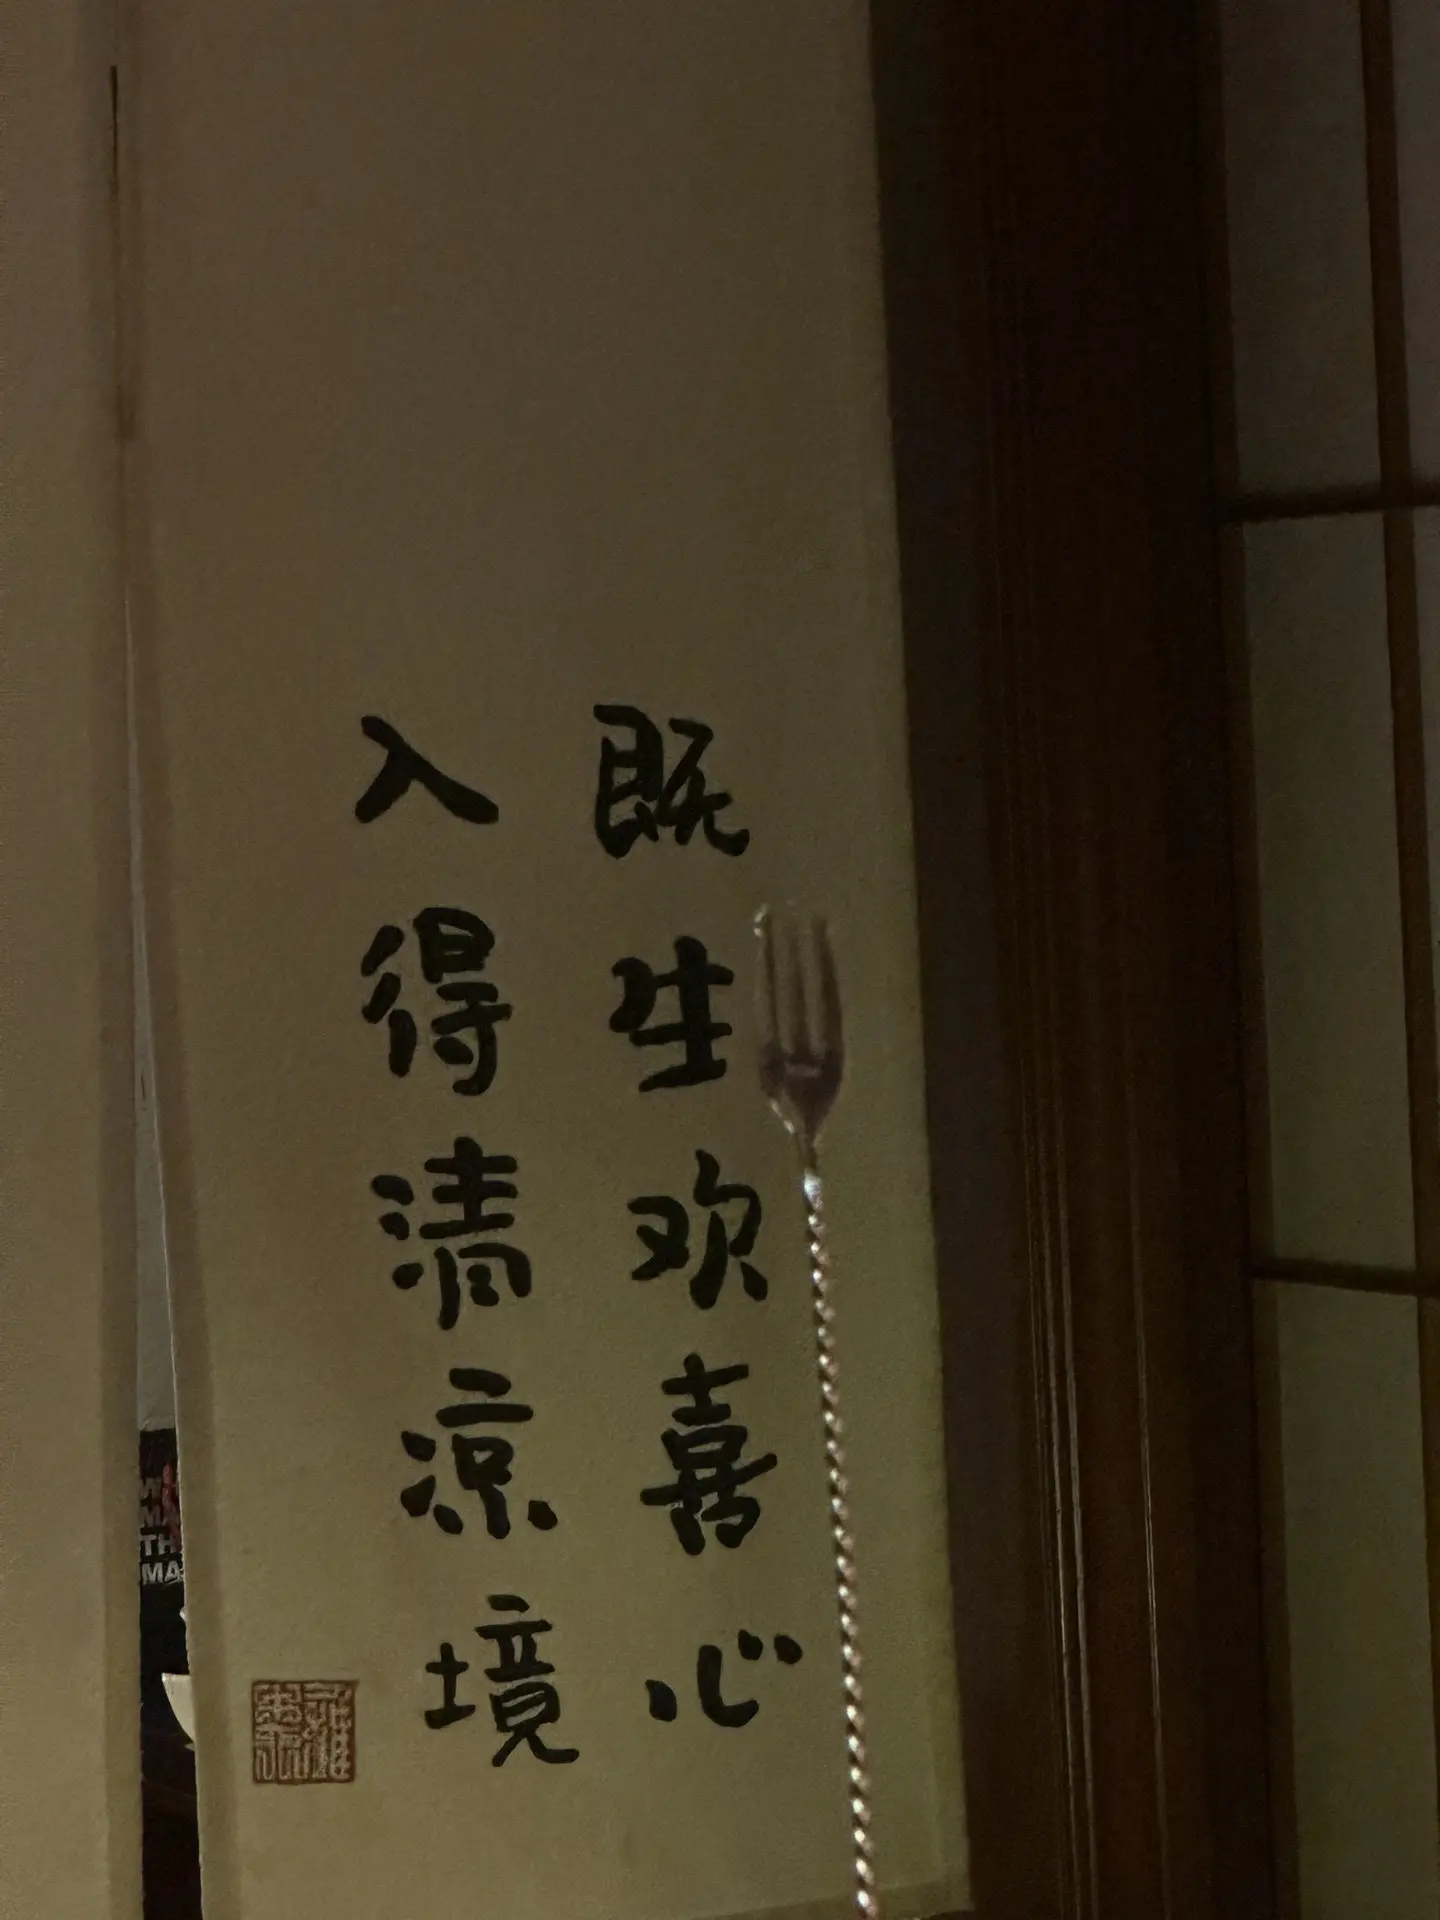 既生欢喜心
入得清凉境
TH
MA